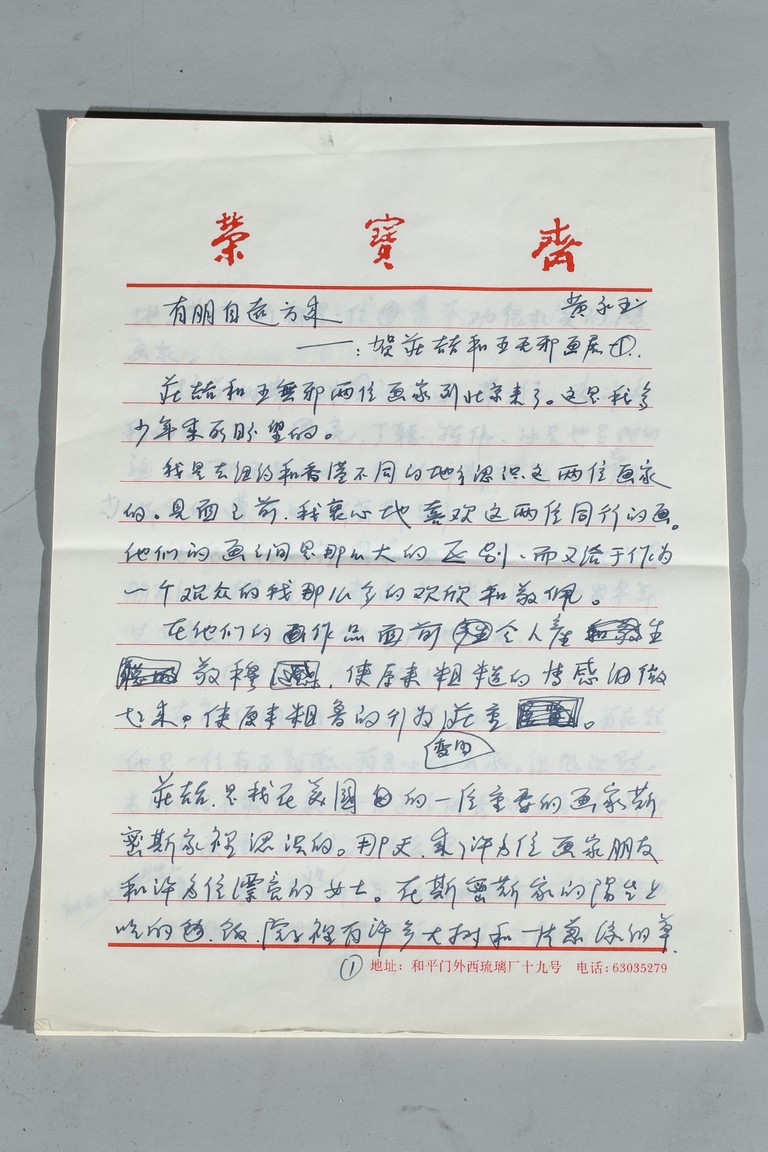 榮寶齋
有朋自远方来 黄永玉
——:贺莊喆和王无邪画展①.
莊喆和王無邪两位画家到北京来了。这是我多
少年来所盼望的。
我是在纽约和香港不同的地方认识这两位画家
的。见面之前.我衷心地喜欢这两位同行的画。
他们的画之间是那么大的区别、而又给于作为
一个观众的我那么多的欢欣和敬佩。
在他们的作品面前令人產生
敬穆.使原来粗糙的情感细微
起来,使原来粗鲁的行为莊重。
变得
莊喆.是我在美國的一位重要的画家斯
密斯家裡认识的。那天.来了许多位画家朋友
和许多位漂亮的女士。在斯密斯家的陽台上
吃的晚.饭.院子裡有许多大树和一片葱绿的草
① 地址：和平门外西琉璃厂十九号 电话:63035279